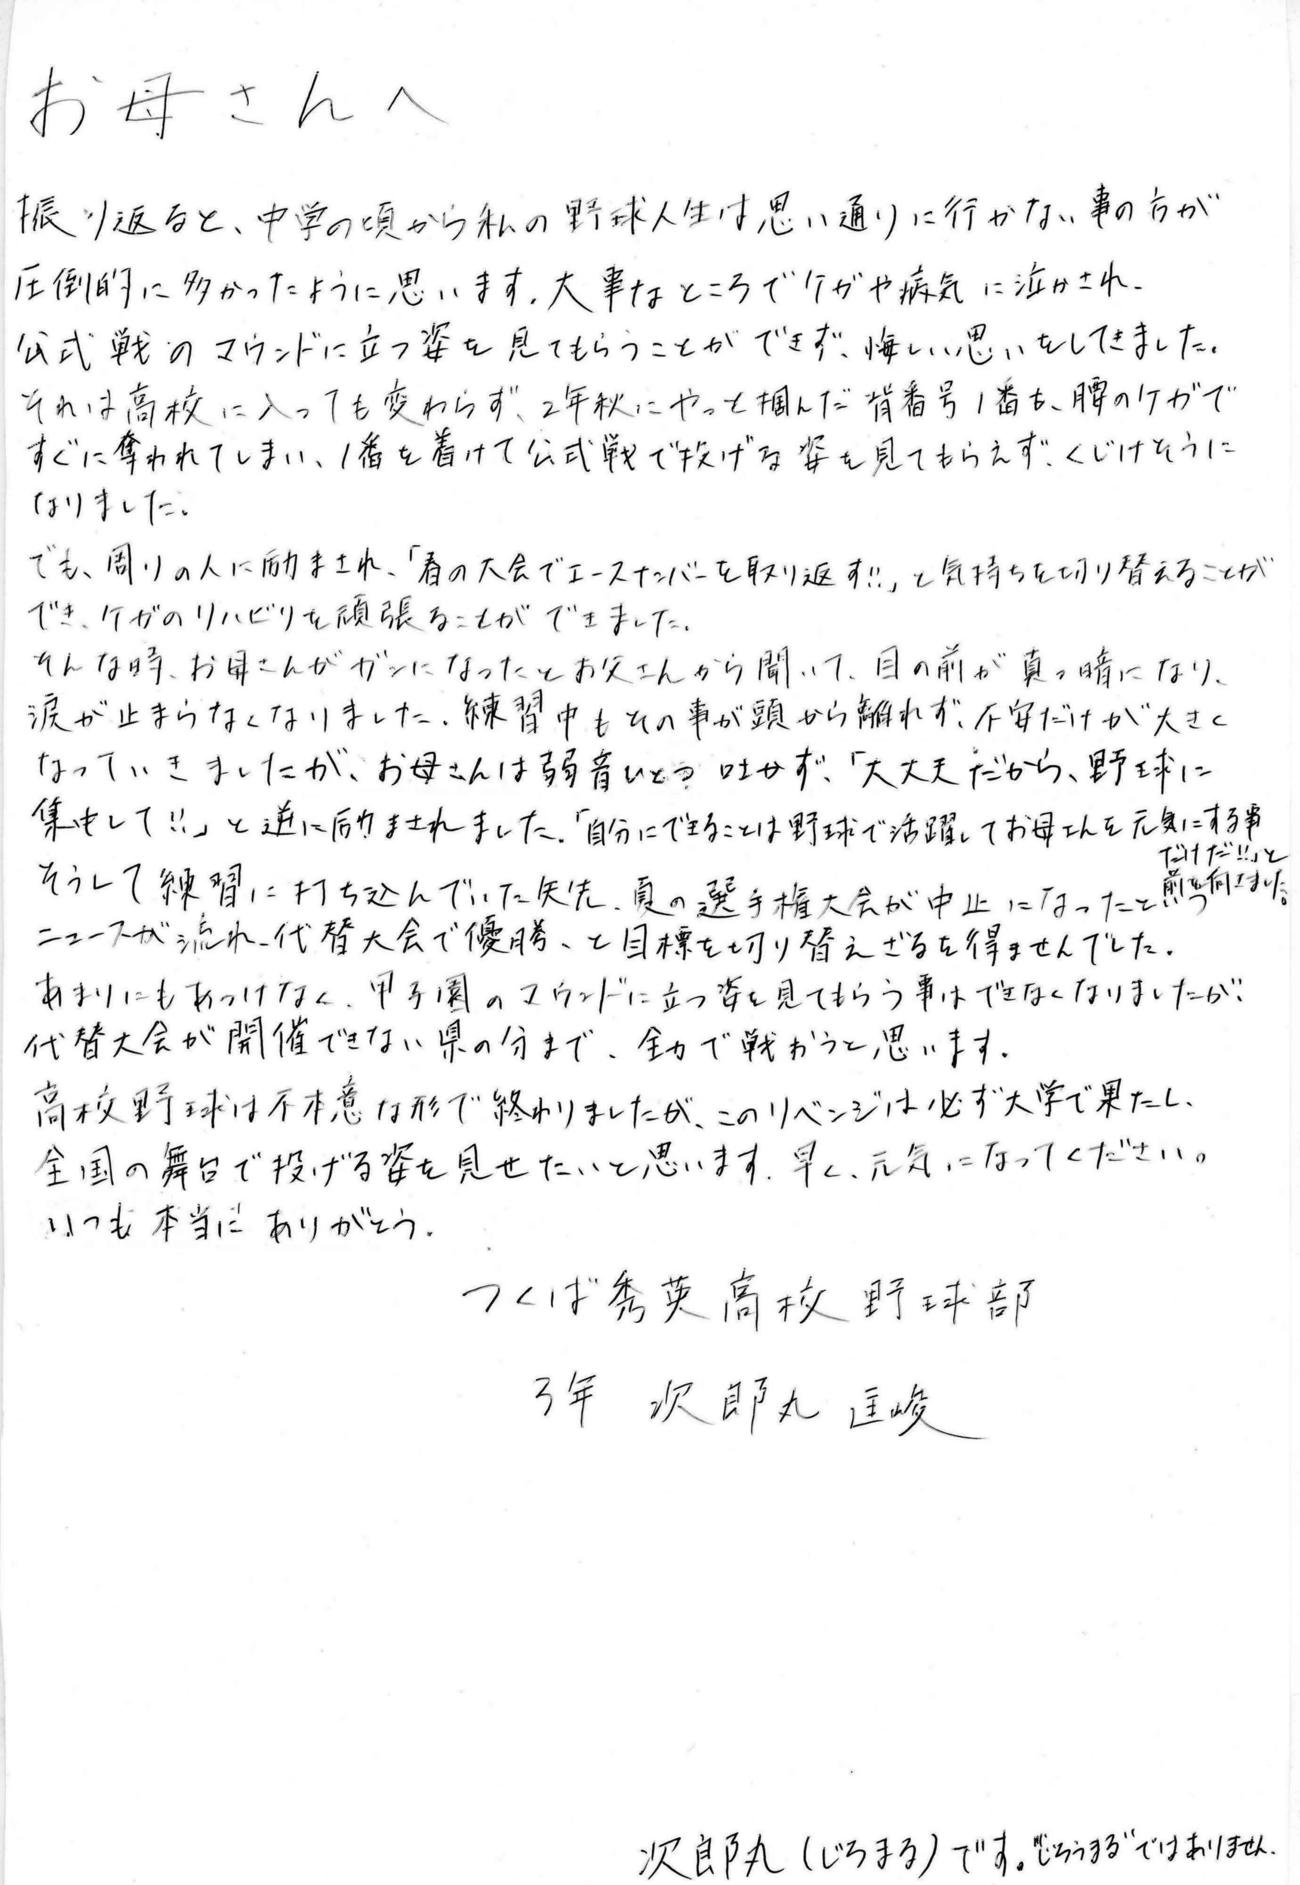 お母さんへ
振り返ると、中学の頃から私の野球人生は思い通りに行かない事の方が
圧倒的に多かったように思います。大事なところでケガや病気に泣かされ、
公式戦のマウンドに立つ姿を見てもらうことができず、悔しい思いをしてきました。
それは高校に入っても変わらず、2年秋にやっと掴んだ背番号1番も、腰のケガで
すぐに奪われてしまい、1番を着けて公式戦で投げる姿を見てもらえず、くじけそうに
なりました。
でも、周りの人に励まされ、「春の大会でエースナンバーを取り返す!!」と気持ちを切り替えることが
でき、ケガのリハビリを頑張ることができました。
そんな時、お母さんがガンになったとお父さんから聞いて、目の前が真っ暗になり、
涙が止まらなくなりました。練習中もその事が頭から離れず、不安だけが大きく
なっていきましたが、お母さんは弱音ひとつ吐かず、「大丈夫だから、野球に
集中して!!」と逆に励まされました。「自分にできることは野球で活躍してお母さんを元気にする事
だけだ!!」と
前を向きました。
そうして練習に打ち込んでいた矢先、夏の選手権大会が中止になったという
ニュースが流れ、代替大会で優勝、と目標を切り替えざるを得ませんでした。
あまりにもあっけなく、甲子園のマウンドに立つ姿を見てもらう事はできなくなりましたが、
代替大会が開催できない県の分まで、全力で戦おうと思います。
高校野球は不本意な形で終わりましたが、このリベンジは必ず大学で果たし、
全国の舞台で投げる姿を見せたいと思います。早く、元気になってください。
いつも本当にありがとう。
つくば秀英高校野球部
3年 次郎丸 匡峻
次郎丸(じろまる)です。"じろうまる"ではありません。